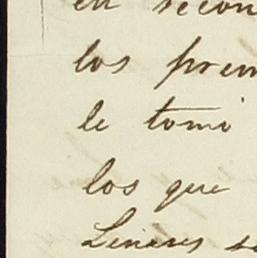 en secon
los prem
le tomó
los que
Linares se